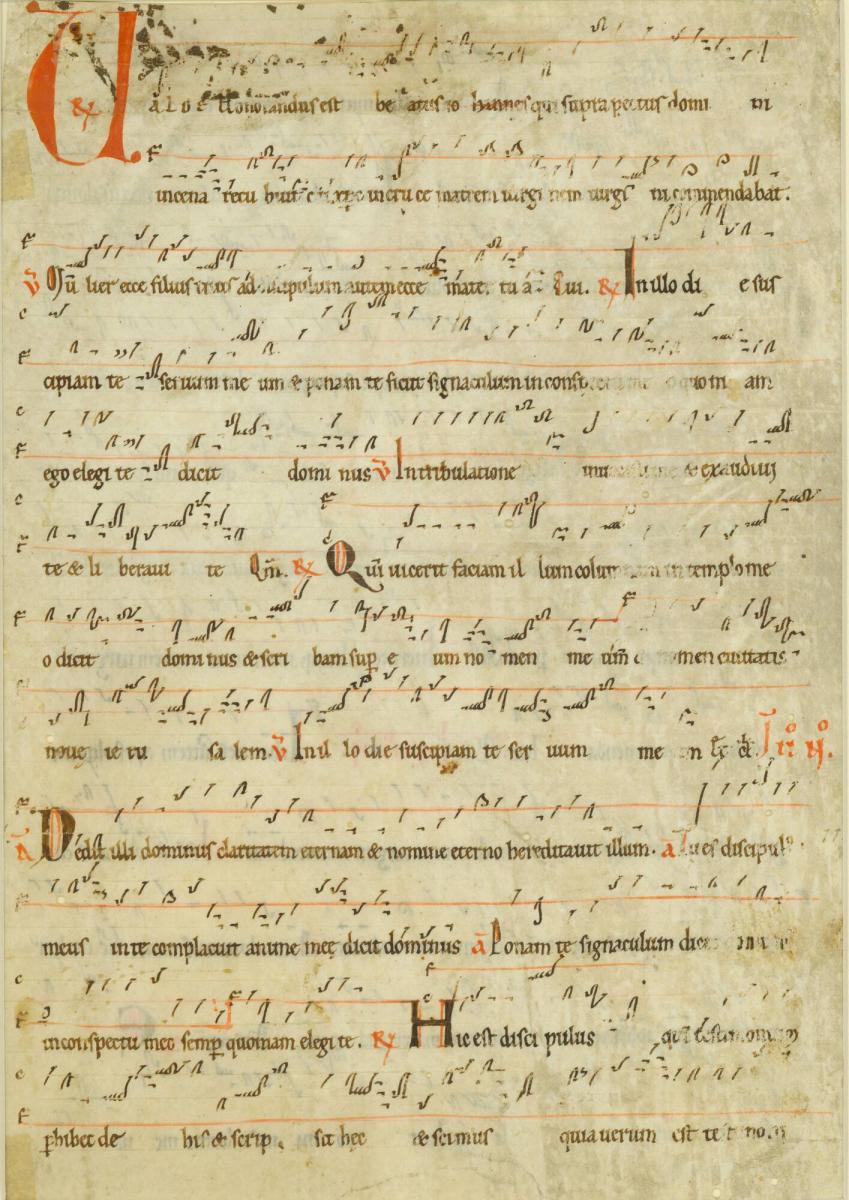 Valde honorandus est beatus io hannes qui supra pectus domi ni
in cena recu buit cui xpc in cru ce matrem uirgi nem uirgi ni commendabat.
℣ Mu lier ecce filius tuus ad discipulum autem ecce mater tu a Cui. ℟ In illo di e sus
cipiam te seruum me um & ponam te sicut signaculum in conspec quoni am
ego elegi te dicit domi nus ℣ In tribulatione & exaudiui
te & li beraui te Qm̄. ℟ Qui uicerit faciam il lum colum in templo me
o dicit domi nus & scri bam sup e um no men me um & nomen ciuitatis
noue ie ru sa lem. ℣ In il lo die suscipiam te ser uum me
A Dedit illi dominus claritatem eternam & nomine eterno hereditauit illum. a Tu es discipulꝰ
meus in te complacuit anime mee dicit dominus a Ponam te signaculum
in conspectu meo semp quoniam elegi te. ℟ Hic est disci pulus qui testimonium
phibet de his & scrip sit hec & scimus quia uerum est